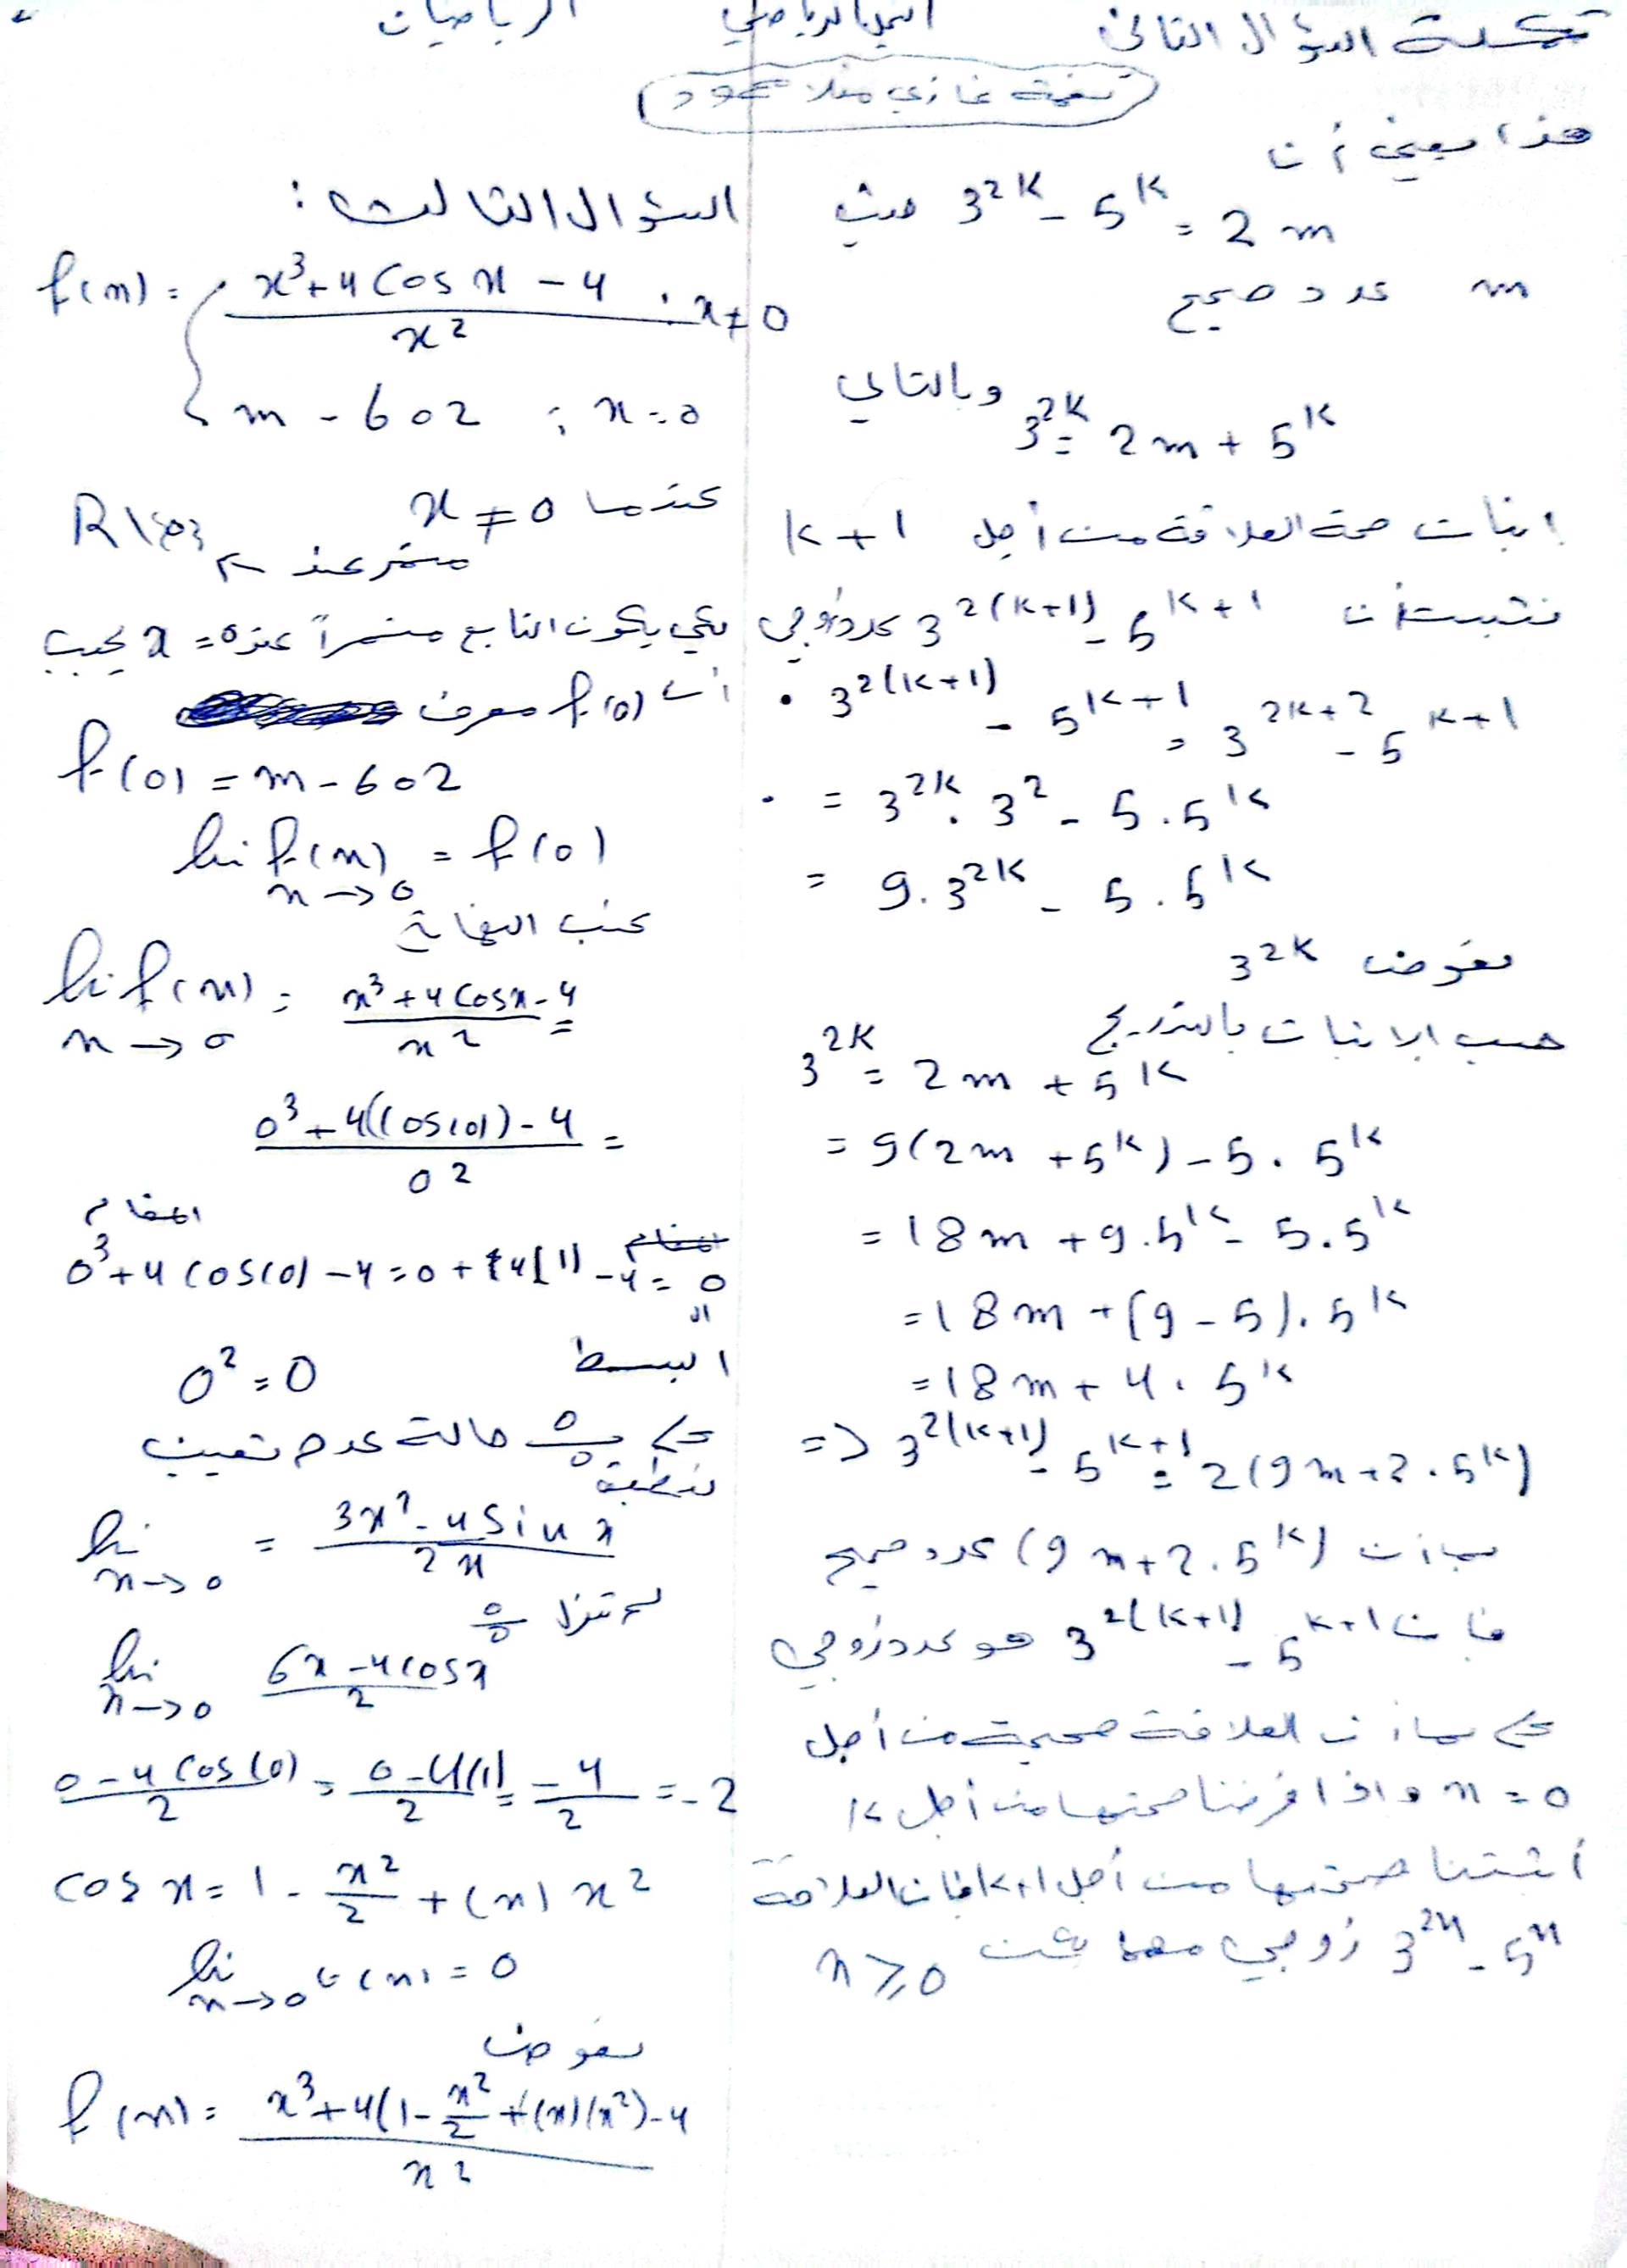 تكملة السؤال الثاني
الرياضيات
(نغمة غازي منلا محمود)
هذا يعني أن
3^{2K} - 5^K = 2m حيث
m عدد صحيح
وبالتالي
3^{2K} = 2m + 5^K
اثبات صحة العلاقة من أجل K+1
نثبت أن 3^{2(K+1)} - 5^{K+1} عدد زوجي
• 3^{2(K+1)} - 5^{K+1} = 3^{2K+2} - 5^{K+1}
• = 3^{2K} . 3^2 - 5 . 5^K
= 9 . 3^{2K} - 5 . 5^K
نعوض 3^{2K}
حسب الاثبات بالتدريج
3^{2K} = 2m + 5^K
= 9(2m + 5^K) - 5 . 5^K
= 18m + 9 . 5^K - 5 . 5^K
= 18m + (9 - 5) . 5^K
= 18m + 4 . 5^K
=> 3^{2(K+1)} - 5^{K+1} = 2(9m + 2 . 5^K)
بما ان (9m + 2 . 5^K) عدد صحيح
فان 3^{2(K+1)} - 5^{K+1} هو عدد زوجي
بما ان العلاقة صحيحة من أجل
n = 0 واذا فرضنا صحتها من أجل K
أثبتنا صحتها من أجل K+1 فان العلاقة
3^{2n} - 5^n زوجي مهما يكن n ≥ 0
السؤال الثالث :
f(x) = { \frac{x^3 + 4 Cos x - 4}{x^2} ; x ≠ 0
m - 602 ; x = 0
عندما x ≠ 0
مستمر عند R\{0}
لكي يكون التابع مستمراً عند x = 0 يجب
أن f(0) معرف
f(0) = m - 602
lim f(x) = f(0)
x → 0
النهاية
lim f(x) = \frac{x^3 + 4 Cos x - 4}{x^2} =
x → 0
\frac{0^3 + 4(Cos(0)) - 4}{0^2} =
المقام
0^3 + 4 cos(0) - 4 = 0 + 4(1) - 4 = 0
البسط
0^2 = 0
\frac{0}{0} حالة عدم تعيين
lim = \frac{3x^2 - 4 Sin x}{2x}
x → 0
\frac{0}{0}
lim \frac{6x - 4 cos x}{2}
x → 0
\frac{0 - 4 cos(0)}{2} = \frac{0 - 4(1)}{2} = \frac{-4}{2} = -2
cos x = 1 - \frac{x^2}{2} + (x) x^2
lim ε(x) = 0
x → 0
نعوض
f(x) = \frac{x^3 + 4(1 - \frac{x^2}{2} + (x)(x^2) - 4}{x^2}